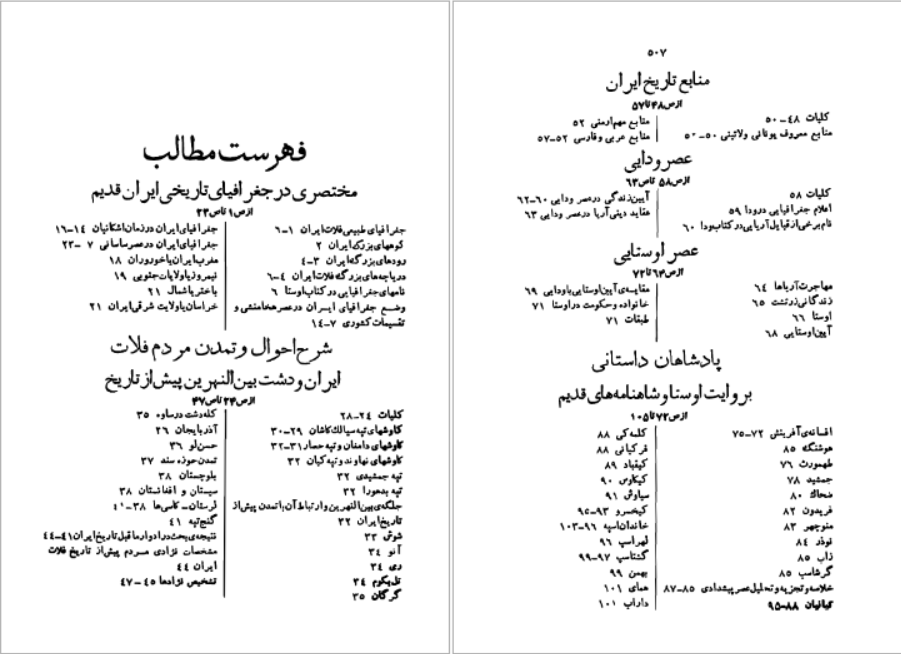 فهرست مطالب
مختصری در جغرافیای تاریخی ایران قدیم
از ص ۱ تا ص ۲۳
جغرافیای طبیعی فلات ایران ۱-۶
کوههای بزرگ ایران ۲
رودهای بزرگ ایران ۳-۴
دریاچه‌های بزرگ فلات ایران ۴-۶
نامهای جغرافیایی در کتاب اوستا ۶
وضع جغرافیای ایران در عصر هخامنشی و
تقسیمات کشوری ۷-۱۴
جغرافیای ایران در زمان اشکانیان ۱۴-۱۶
جغرافیای ایران در عصر ساسانی ۷ -۲۳
مغرب ایران یا خوروران ۱۸
نیمروز یا ولایات جنوبی ۱۹
باختر یا شمال ۲۱
خراسان یا ولایت شرقی ایران ۲۱
شرح احوال و تمدن مردم فلات
ایران و دشت بین‌النهرین پیش از تاریخ
از ص ۲۴ تا ص ۴۷
کلیات ۲۴-۲۸
کاوشهای تپه سیالك کاشان ۲۹-۳۰
کاوشهای دامغان و تپه حصار ۳۱-۳۲
کاوشهای نهاوند و تپه گیان ۳۲
تپه جمشیدی ۳۲
تپه بدهورا ۳۲
جلگه‌ی بین‌النهرین و ارتباط آن با تمدن پیش از
تاریخ ایران ۳۲
شوش ۳۳
آنو ۳۴
ری ۳۴
تل‌بکوم ۳۴
گرگان ۳۵
کله‌دشت در ساوه ۳۵
آذربایجان ۳۶
حسن‌لو ۳۶
تمدن حوزه سند ۳۷
بلوچستان ۳۸
سیستان و افغانستان ۳۸
لرستان- کاسی‌ها ۳۸-۴۱
گنج‌تپه ۴۱
نتیجه‌ی بحث در ادوار ماقبل تاریخ ایران ۴۱-۴۴
مشخصات نژادی مردم پیش از تاریخ فلات
ایران ۴۴
تشخیص نژادها ۴۵-۴۷
۵۰۷
منابع تاریخ ایران
از ص ۴۸ تا ۵۷
کلیات ۴۸-۵۰
منابع معروف یونانی و لاتینی ۵۰-۵۰
منابع مهم ارمنی ۵۲
منابع عربی و فارسی ۵۲-۵۷
عصر ودایی
از ص ۵۸ تا ص ۶۳
کلیات ۵۸
اعلام جغرافیایی در ودا ۵۹
نام برخی از قبایل آریایی در کتاب ودا ۶۰
آیین زندگی در عصر ودایی ۶۰-۶۲
عقاید دینی آریا در عصر ودایی ۶۳
عصر اوستایی
از ص ۶۴ تا ۷۲
مهاجرت آریاها ۶۴
زندگانی زرتشت ۶۵
اوستا ۶۶
آیین اوستایی ۶۸
مقایسه‌ی آیین اوستایی با ودایی ۶۹
خانواده و حکومت در اوستا ۷۱
طبقات ۷۱
پادشاهان داستانی
بروایت اوستا و شاهنامه‌های قدیم
از ص ۷۲ تا ۱۰۵
افسانه‌ی آفرینش ۷۲-۷۵
هوشنگ ۸۵
طهمورث ۷۶
جمشید ۷۸
ضحاك ۸۰
فریدون ۸۲
منوچهر ۸۳
نوذر ۸۴
زاب ۸۵
گرشاسب ۸۵
خلاصه و تجزیه و تحلیل عصر پیشدادی ۸۵-۸۷
کیانیان ۸۸-۹۵
کلمه‌کی ۸۸
فر کیانی ۸۸
کیقباد ۸۹
کیکاوس ۹۰
سیاوش ۹۱
کیخسرو ۹۳-۹۵
خاندان اسپه ۹۶-۱۰۳
لهراسپ ۹۶
گشتاسپ ۹۷-۹۹
بهمن ۹۹
همای ۱۰۱
داراب ۱۰۱